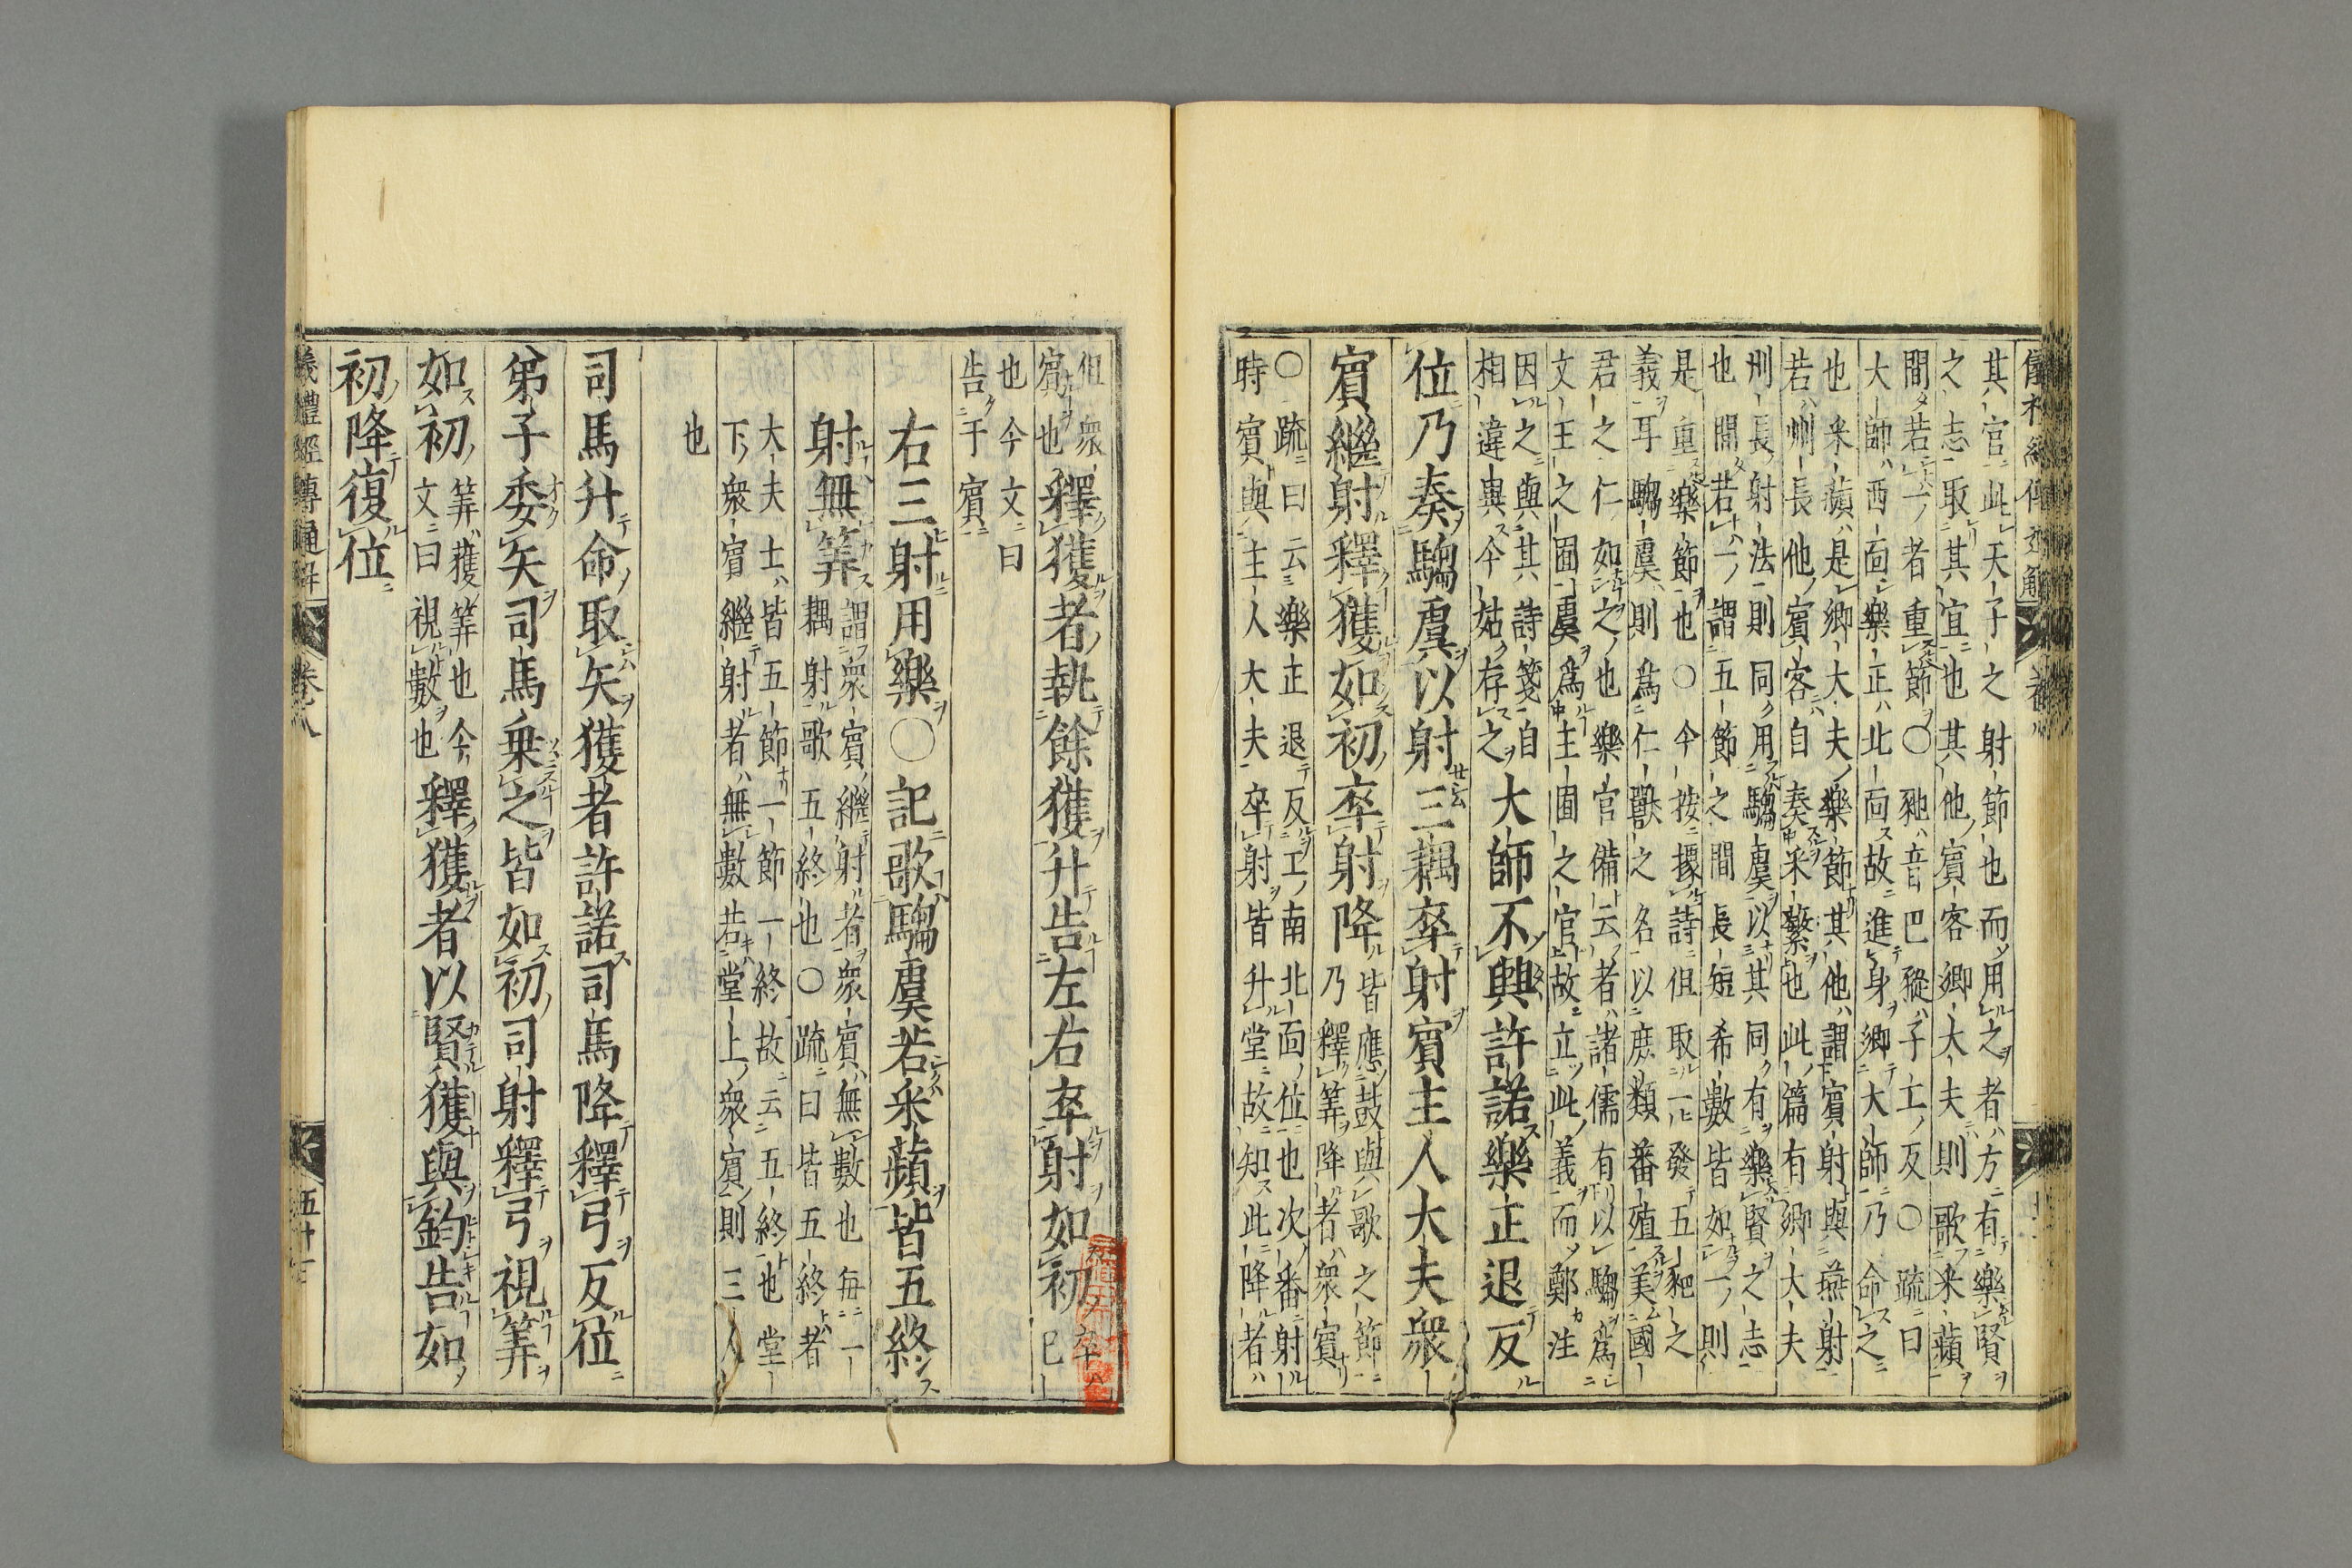 其官此天子之射節也而用之者方有樂賢
之志取其宜也其他賓客卿大夫則歌采蘋
間若一者重節〇豝音巴豵子工反〇疏曰
大師西面樂正北面故進身卿大師乃命之
也采蘋是卿大夫樂節其他謂賓射與燕射
若州長他賓客自奏采蘩也此篇有卿大夫
州長射法則同用騶虞以其同有樂賢之志
也間若一謂五節之間長短希數皆如一則
是重樂節也〇今按據詩但取一發五豝之
義耳騶虞則爲仁獸之名以庶類蕃殖美國
君之仁如之也樂官備云者諸儒有以騶爲
文王之囿虞爲主囿之官故立此義而鄭注
因之與其詩箋自
相違異今姑存之
大師不興許諾樂正退反
位乃奏騶虞以射三耦卒射賓主人大夫衆
賓繼射釋獲如初卒射降
皆應鼓與歌之節
乃釋筭降者衆賓
〇疏曰云樂正退反工南北面位也次番射
時賓與主人大夫卒射皆升堂故知此降者
但衆
賓也
釋獲者執餘獲升告左右卒射如初
卒已
也今文曰
告于賓
右三射用樂〇記歌騶虞若采蘋皆五終
射無筭
謂衆賓繼射者衆賓無數也每一
耦射歌五終也〇疏曰皆五終者
大夫士皆五節一節一終故云五終也堂
下衆賓繼射者無數若堂上衆賓則三人
也
司馬升命取矢獲者許諾司馬降釋弓反位
弟子委矢司馬乘之皆如初司射釋弓視筭
如初
筭獲筭也今
文曰視數也
釋獲者以賢獲與鈞告如
初降復位
儀禮經傳通解 卷八 五十一